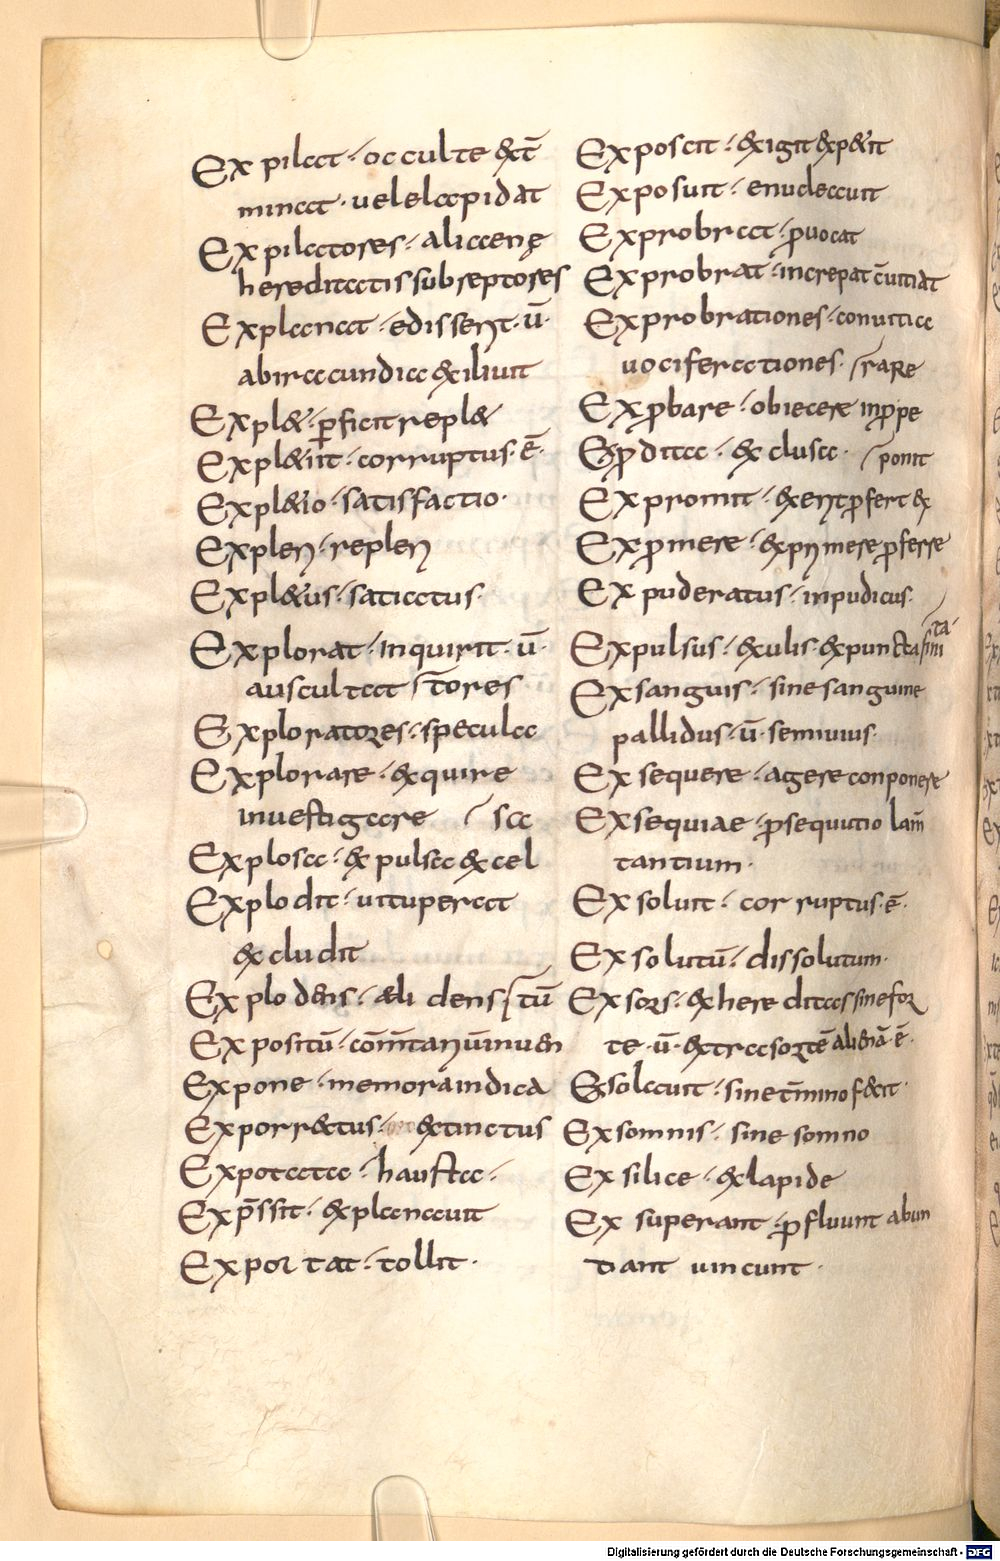 Expilat · occulte &t̄
minat · uel elapidat
Expilatores · alienę
hereditatis subreptores
Explanat · edisserit · ū ·
abiracundia exiliuit
Expl& · perficit repl&
Expl&iit · corruptus · ē ·
Expl&io · satisfactio ·
Expleri · repleri
Expl&us · satiatus ·
Explorat · inquirit · ū ·
auscultat / tores
Exploratores · specula
Explorare · exquire
inuestigare / sa
Explosa · expulsa excel
Explodit · uituperat
excludit
Explodens · elidens / tū
Expositū · com̄tariūinuen
Expone · memora indica
Exporr&tus · extinctus
Expotata · hausta ·
Exp̄ssit · explanauit
Exportat · tollit ·
Exposcit · exigit exp&it
Exposuit · enucleauit
Exprobrat · ꝓuocat
Exprobrat · increpat c̄uitiat
Exprobrationes · conuitia
uociferationes · / rare
Exꝓbare · obiecere inꝓpe
Exꝓdita · exclusa · / ponit
Expromit · exerit ꝓfert ex
Exꝓmere · exprimere ꝓferre
Expuderatus · inpudicus ·
/ ta ·
Expulsus · exulis · expuncta fini
Exsanguis · sine sanguine
pallidus · ū · semiuius ·
Exsequere · agere conponere
Exsequiae · ꝓsequutio lam̄
tantium ·
Exsoluit · corruptus · ē ·
Exsolutū · dissolutum ·
Exsors · exhereditas sine for
te · ū · extra sortē alienā · ē ·
Exsolauit · sine t̄mino fecit ·
Exsomnis · sine somno
Exsilice · exlapide
Exsuperant · ꝓfluunt abun
dant uincunt ·
Digitalisierung gefördert durch die Deutsche Forschungsgemeinschaft - DFG